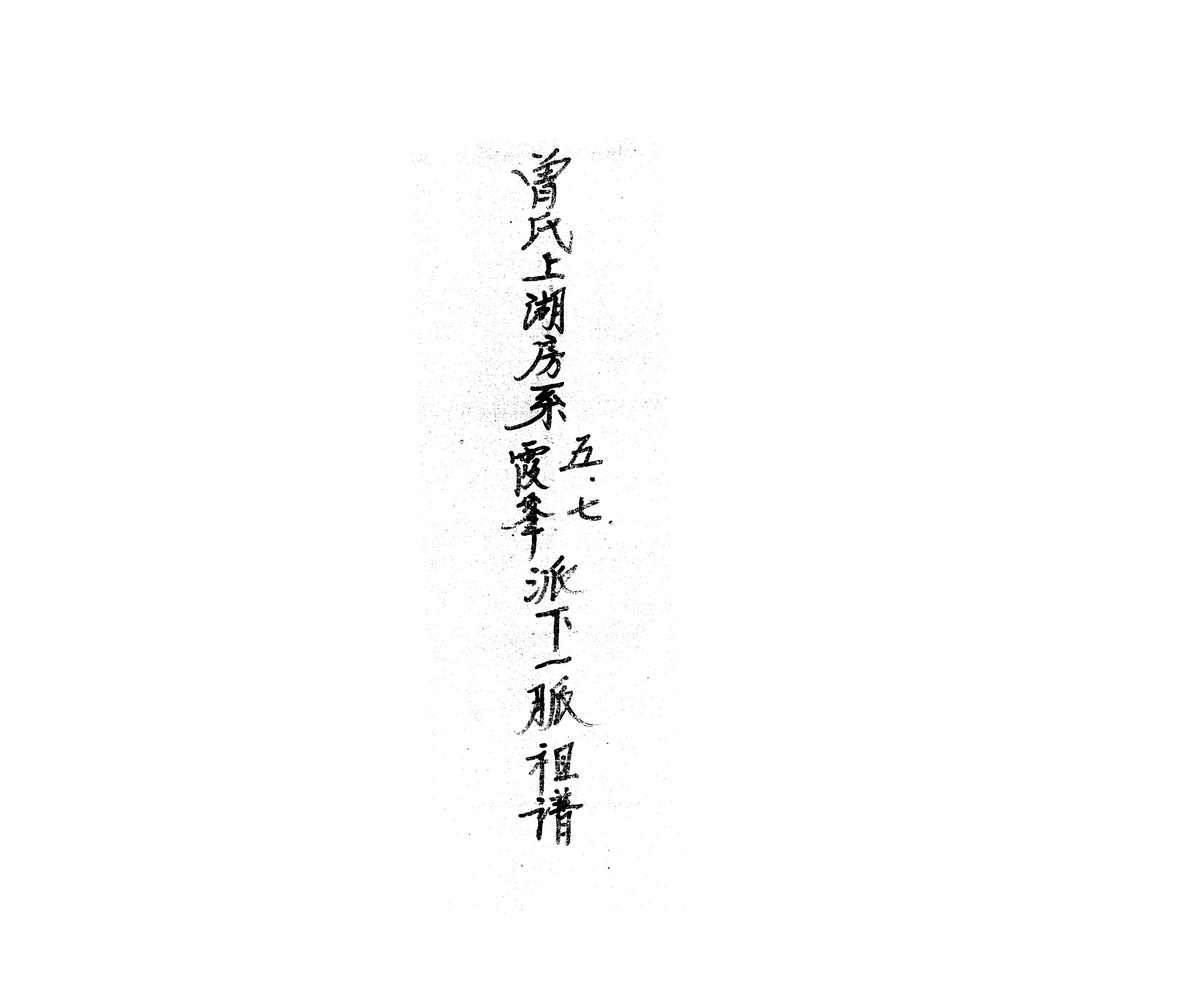 曾氏上湖房系霞峯派下一脈祖谱
五.七.